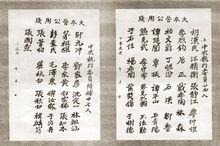 大本營公用牋
中央執行委員二十四人
胡漢民 汪精衛 張靜江 廖仲愷
李烈鈞 居正 戴季陶 林森
柏文蔚 丁惟汾 石瑛 鄒魯
譚延闓 覃振 譚平山 石青陽
熊克武 李守常 恩克巴圖 王法勤
于右任 楊希閔 葉楚傖 于樹德
大本營公用牋
中央執行委員候補十七人
邵元沖 鄧家彥 沈定一 林祖涵
茅祖權 李宗黃 白雲梯 張知本
彭素民 毛澤東 傅汝霖 于方舟
張葦村 瞿秋白 張秋白 韓麟符
張國燾